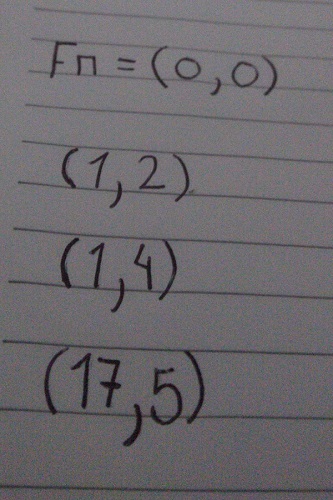 Fп = (0,0)
(1,2)
(1,4)
(17,5)